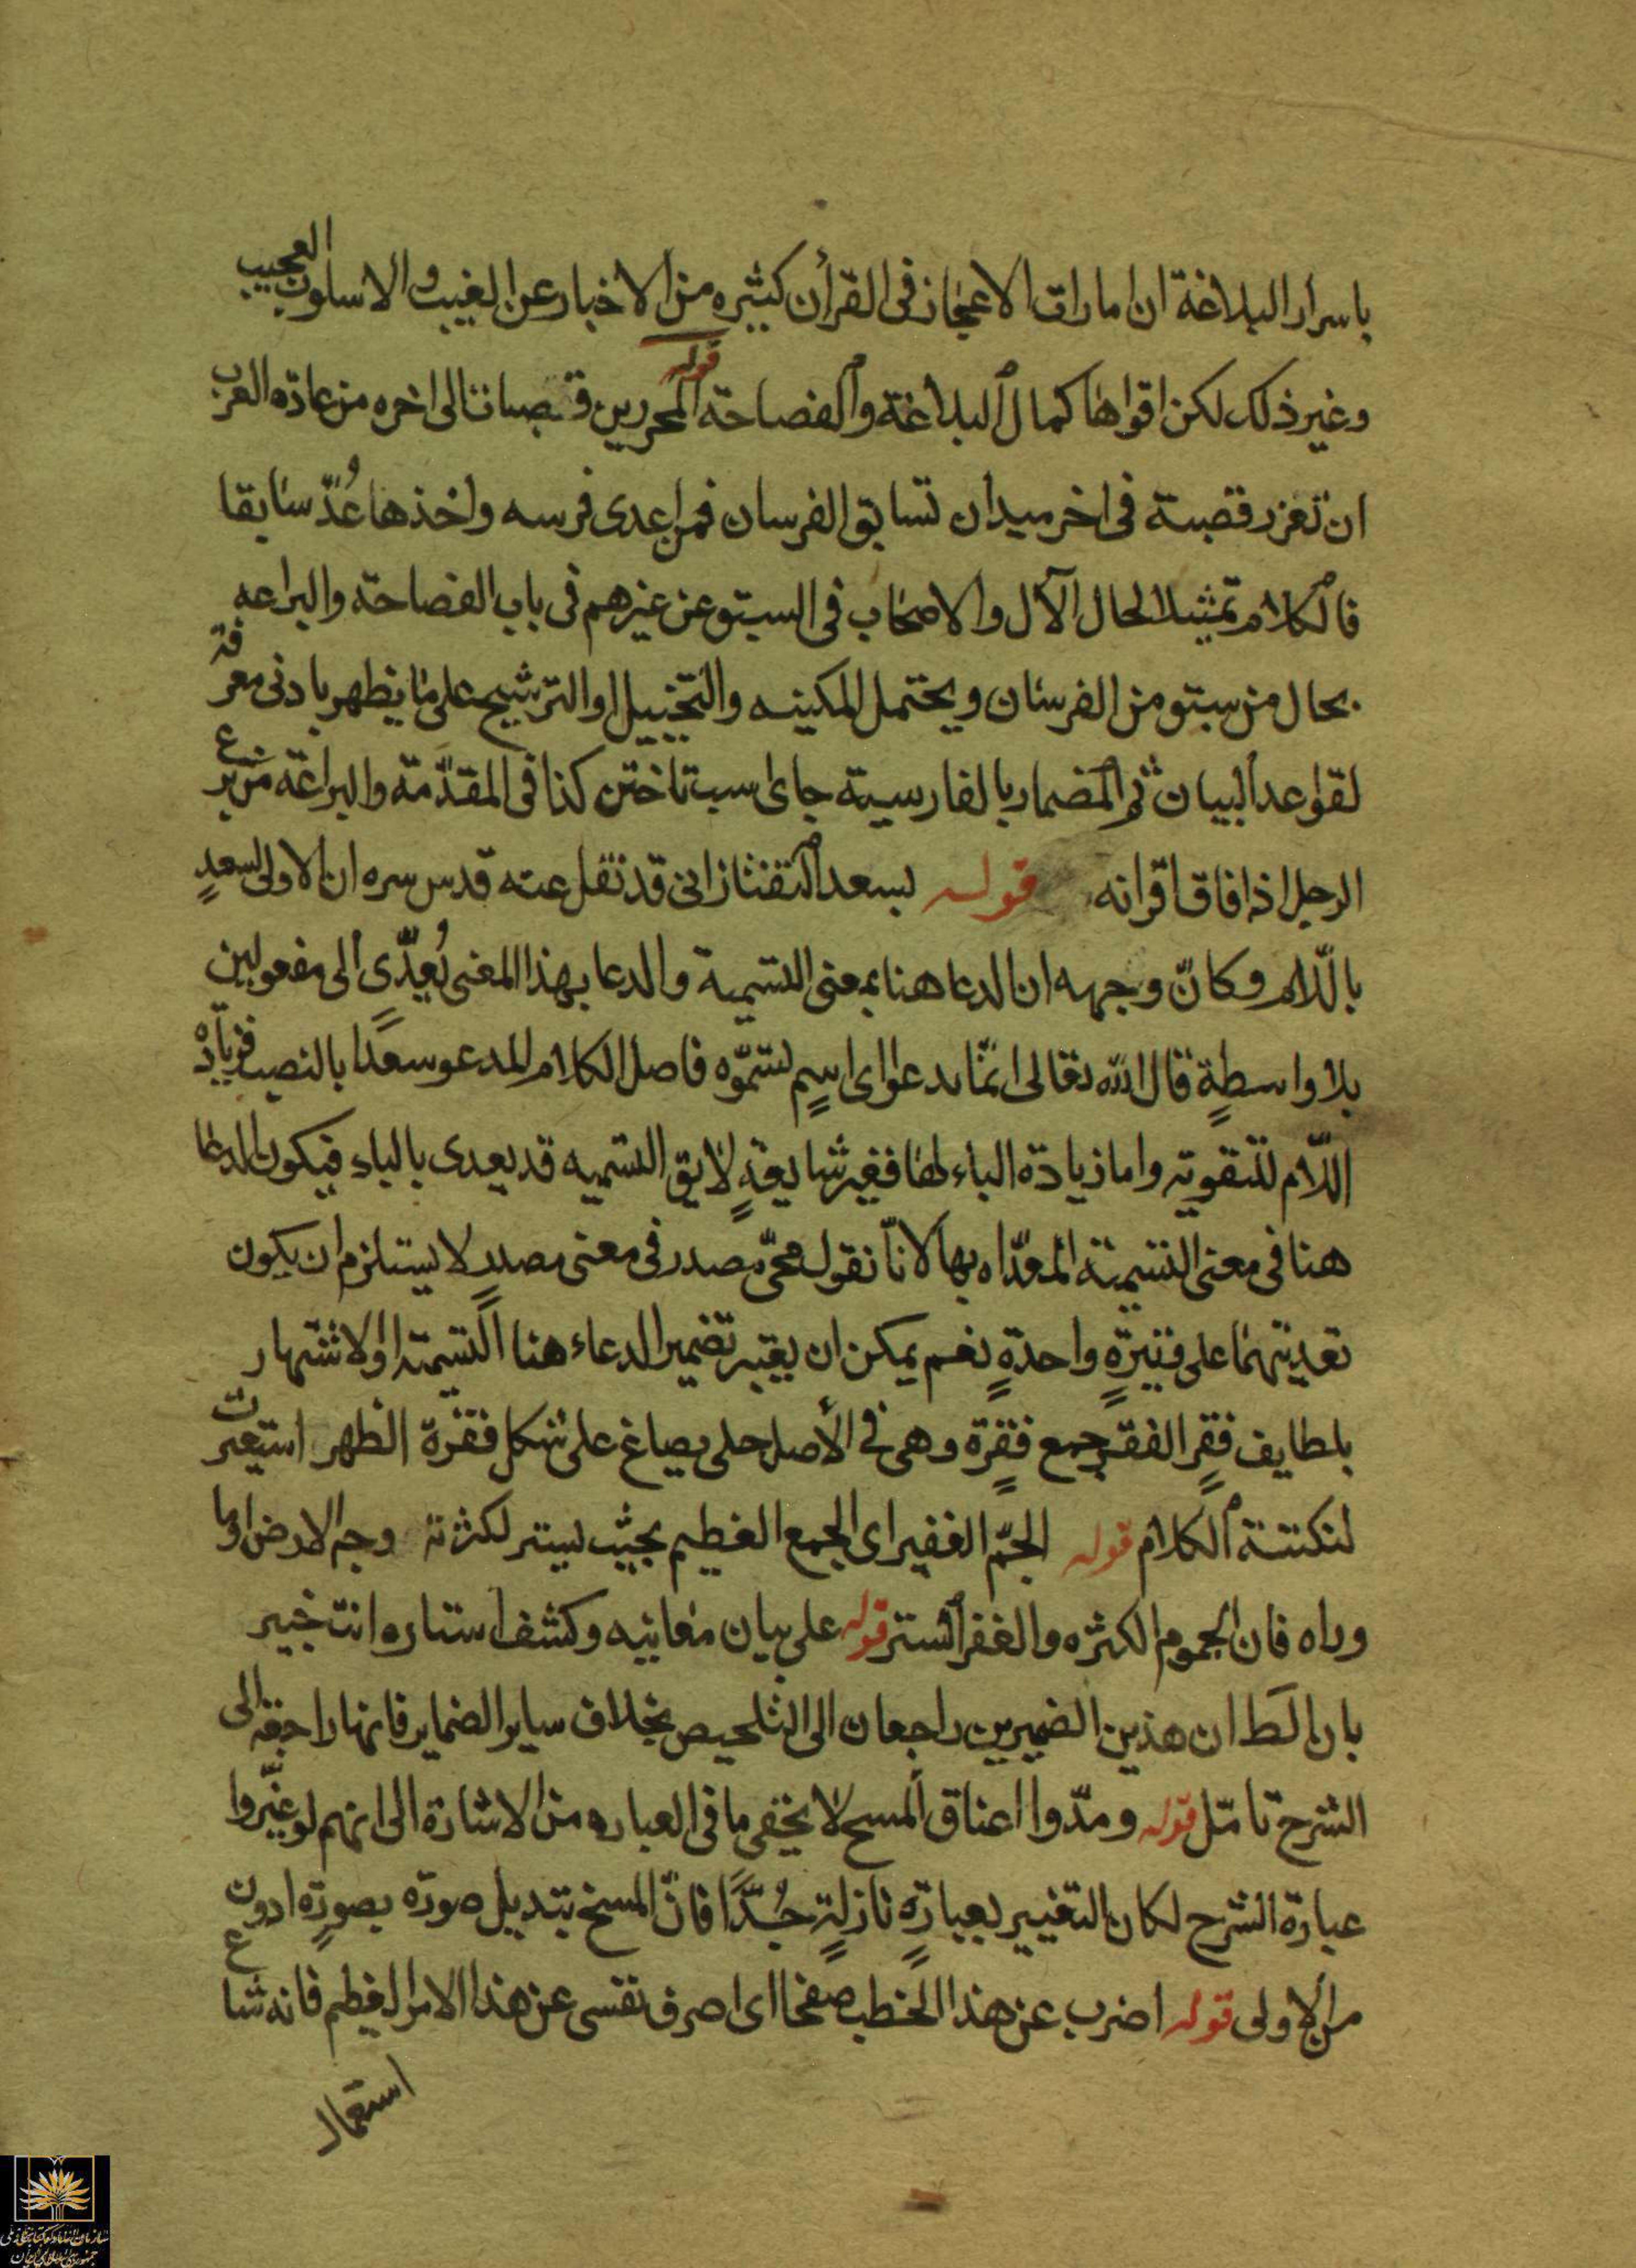 باسرار البلاغة ان امارات الاعجاز فى القرأن كثيره من الاخبار عن الغيب والاسلوب العجيب
وغير ذلك لكن اقواها كمال البلاغة والفصاحة قوله المحرزين قصبات الى اخره من عادة العرب
ان تغرز قصبة فى اخر ميدان تسابق الفرسان فمن اعدى فرسه واخذها عُدّ سابقا
فالكلام تمثيلا لحال الآل والاصحاب فى السبق عن غيرهم فى باب الفصاحة والبراعه
بحال من سبق من الفرسان ويحتمل المكنيه والتخييل او الترشيح على ما يظهر بادنى معرفة
لقواعد البيان ثم المضمار بالفارسية جاى اسب تاختن كذا فى المقدّمة والبراعة من برع
الرجل اذا فاق اقرانه قوله بسعد التفتازانى قد نقل عنه قدس سره ان الاولى لسعدٍ
باللّام وكانّ وجهه ان الدعا هنا بمعنى التسمية والدعا بهذا المعنى يُعدّى الى مفعولين
بلا واسطةٍ قال الله تعالى ايّاما تدعوا اى اسمٍ تسمّوه فاصل الكلام المدعو سعدًا بالنصب فزيادة
اللّام للتقويه واما زيادة الباء لها فغير شايعةٍ لا يق التسميه قد يعدى بالباء فيكون الدعا
هنا فى معنى التسمية المعدّاه بها لانا نقول مجىّ مصدر فى معنى مصدرٍ لا يستلزم ان يكون
تعديتهما على وتيرةٍ واحدةٍ نعم يمكن ان يعتبر تضمين الدعاء هنا التسمية او الاشتهار
بلطايف فقرٍ الفقر جمع فقرة وهى فى الأصل حلى يصاغ على شكل فقرة الظهر استعيرت
لنكتة الكلام قوله الجمّ الغفير اى الجمع العظيم بحيث يستر لكثرته وجه الارض او ما
وراه فان الجموم الكثره والغفر الستر قوله على بيان معانيه وكشف استاره انت خبير
بان الظ ان هذين الضميرين راجعان الى التلخيص بخلاف ساير الضماير فانها راجعة الى
الشرح تامّل قوله ومدّوا اعناق المسخ لا يخفى ما فى العباره من الاشارة الى انهم لو غيّروا
عبارة الشرح لكان التغيير بعبارةٍ نازلةٍ جدًّا فانّ المسخ تبديل صورة بصورةٍ ادون
من الاولى قوله اضرب عن هذا الخطب صفحا اى اصرف نفسى عن هذا الامر العظيم فانه شاع
استعمال